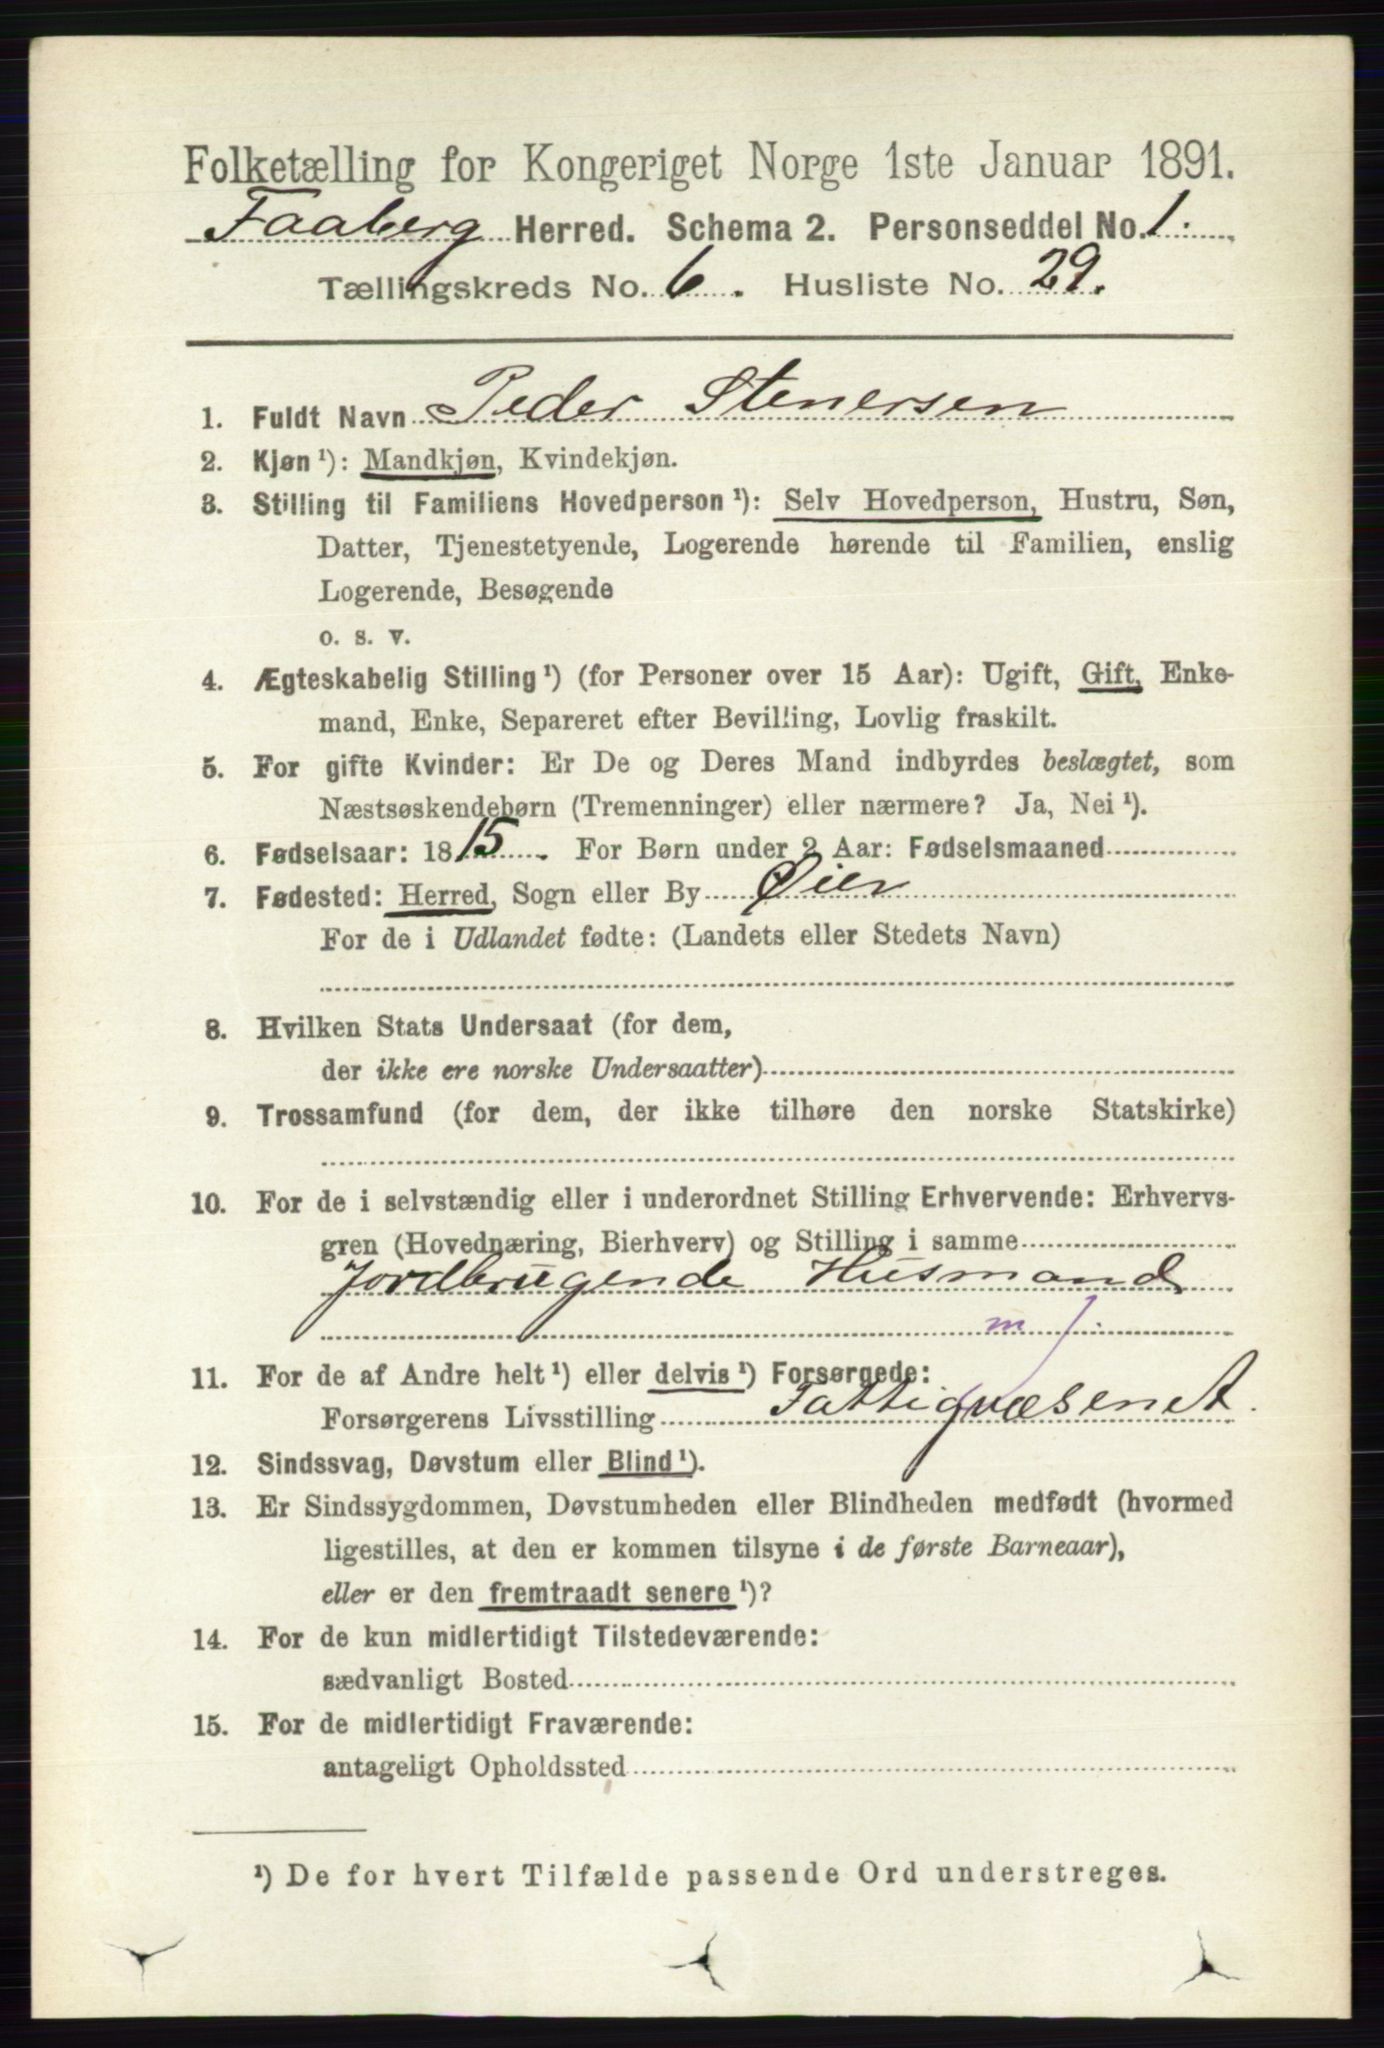 Folketælling for Kongeriget Norge 1ste Januar 1891.
Faaberg Herred. Schema 2. Personseddel No. 1.
Tællingskreds No. 6. Husliste No. 29.
1. Fuldt Navn Peder Stenersen
2. Kjøn ¹): Mandkjøn, Kvindekjøn.
3. Stilling til Familiens Hovedperson ¹): Selv Hovedperson, Hustru, Søn,
Datter, Tjenestetyende, Logerende hørende til Familien, enslig
Logerende, Besøgende
o. s. v.
4. Ægteskabelig Stilling ¹) (for Personer over 15 Aar): Ugift, Gift, Enke-
mand, Enke, Separeret efter Bevilling, Lovlig fraskilt.
5. For gifte Kvinder: Er De og Deres Mand indbyrdes beslægtet, som
Næstsøskendebørn (Tremenninger) eller nærmere? Ja, Nei ¹).
6. Fødselsaar: 1815. For Børn under 2 Aar: Fødselsmaaned
7. Fødested: Herred, Sogn eller By Øier
For de i Udlandet fødte: (Landets eller Stedets Navn)
8. Hvilken Stats Undersaat (for dem,
der ikke ere norske Undersaatter)
9. Trossamfund (for dem, der ikke tilhøre den norske Statskirke)
10. For de i selvstændig eller i underordnet Stilling Erhvervende: Erhvervs-
gren (Hovednæring, Bierhverv) og Stilling i samme
Jordbrugende Husmand
m j.
11. For de af Andre helt ¹) eller delvis ¹) Forsørgede:
Forsørgerens Livsstilling Fattigvæsenet.
12. Sindssvag, Døvstum eller Blind ¹).
13. Er Sindssygdommen, Døvstumheden eller Blindheden medfødt (hvormed
ligestilles, at den er kommen tilsyne i de første Barneaar),
eller er den fremtraadt senere ¹)?
14. For de kun midlertidigt Tilstedeværende:
sædvanligt Bosted
15. For de midlertidigt Fraværende:
antageligt Opholdssted
¹) De for hvert Tilfælde passende Ord understreges.